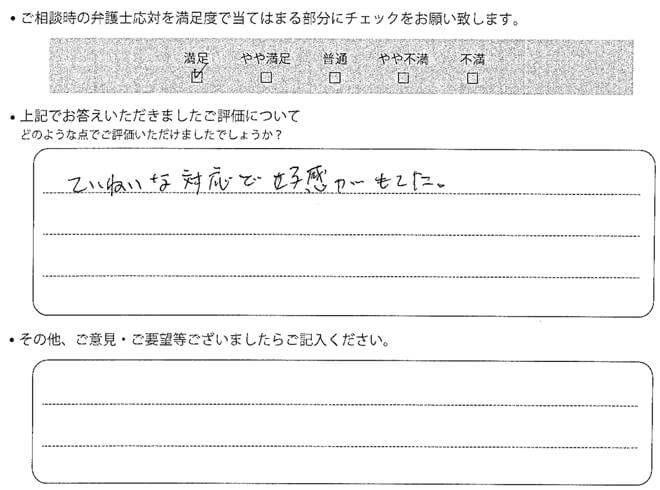 • ご相談時の弁護士応対を満足度で当てはまる部分にチェックをお願い致します。
満足 やや満足 普通 やや不満 不満
☑ □ □ □ □
• 上記でお答えいただきましたご評価について
どのような点でご評価いただけましたでしょうか？
ていねいな対応で好感がもてた。
• その他、ご意見・ご要望等ございましたらご記入ください。